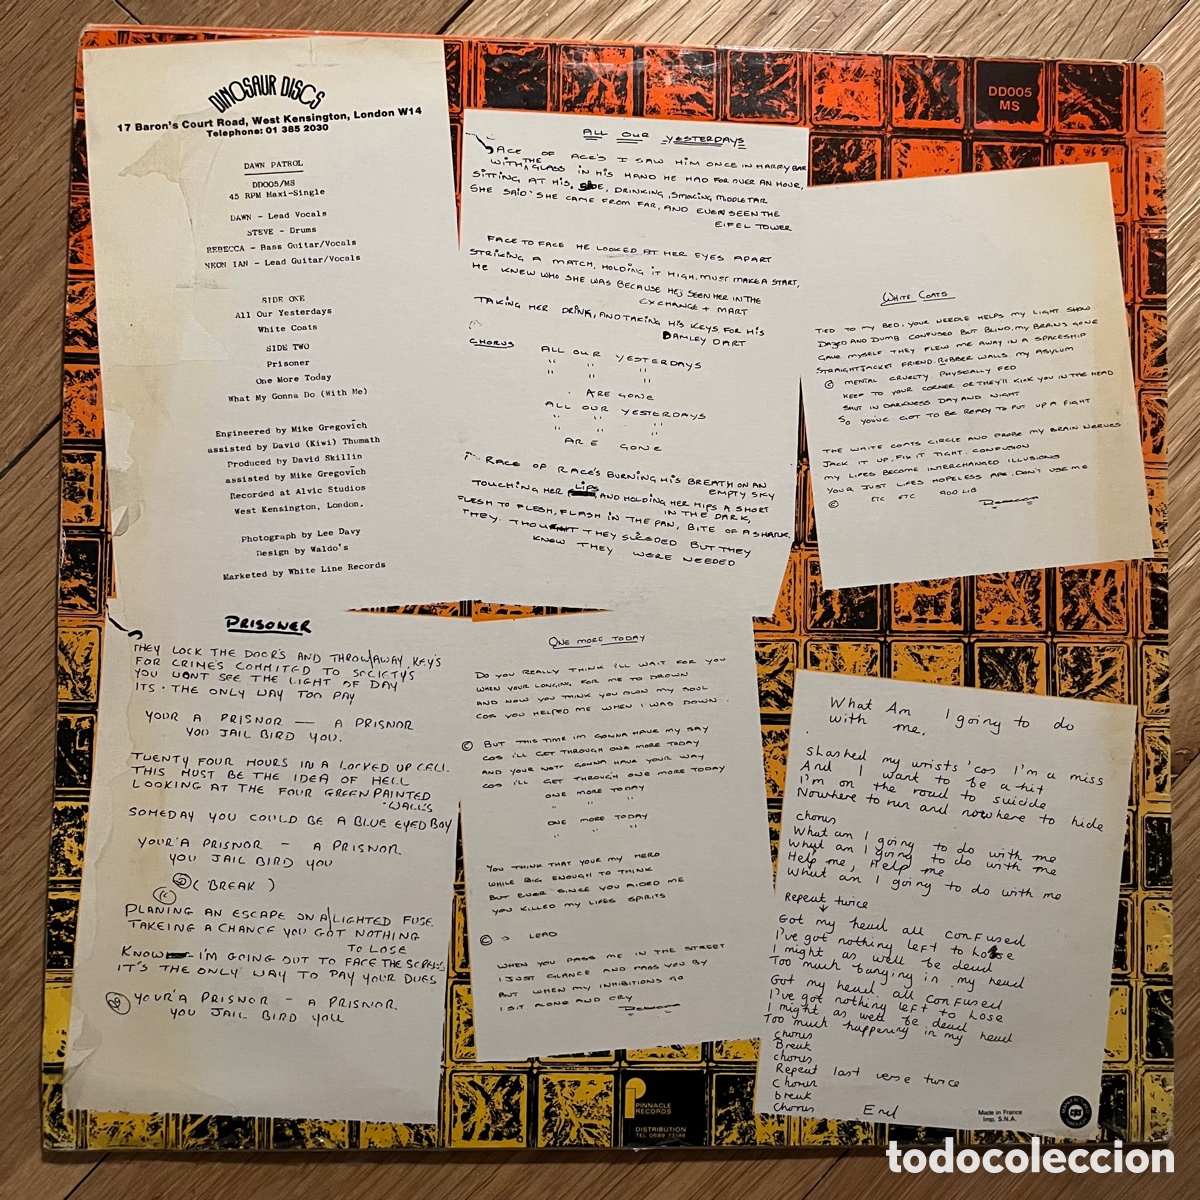 DINOSAUR DISCS
17 Baron's Court Road, West Kensington, London W14
Telephone: 01 385 2030
DAWN PATROL
DD005/MS
45 RPM Maxi-Single
DAWN - Lead Vocals
STEVE - Drums
REBECCA - Bass Guitar/Vocals
NEON IAN - Lead Guitar/Vocals
SIDE ONE
All Our Yesterdays
White Coats
SIDE TWO
Prisoner
One More Today
What My Gonna Do (With Me)
Engineered by Mike Gregovich
assisted by David (Kiwi) Thumath
Produced by David Skillin
assisted by Mike Gregovich
Recorded at Alvic Studios
West Kensington, London.
Photograph by Lee Davy
Design by Waldo's
Marketed by White Line Records
ALL OUR YESTERDAYS
ACE OF ACE'S I SAW HIM ONCE IN HARRY BAR
WITH THE GLASS IN HIS HAND HE HAD FOR OVER AN HOUR,
SITTING AT HIS, SIDE, DRINKING, SMOKING MIDDLE TAR
SHE SAID SHE CAME FROM FAR, AND EVEN SEEN THE
EIFEL TOWER
FACE TO FACE HE LOOKED AT HER EYES APART
STRIKING A MATCH, HOLDING IT HIGH, MUST MAKE A START,
HE KNEW WHO SHE WAS BECAUSE HE'S SEEN HER IN THE
EXCHANGE + MART
TAKING HER DRINK, AND TAKING HIS KEYS, FOR HIS
DAMLEY DART
CHORUS ALL OUR YESTERDAYS
" " "
" " "
ARE GONE
ALL OUR YESTERDAYS
" " "
" " "
ARE GONE
RACE OF RACE'S BURNING HIS BREATH ON AN
EMPTY SKY
TOUCHING HER LIPS, AND HOLDING HER HIPS A SHORT
IN THE DARK,
FLESH TO FLESH, FLASH IN THE PAN, BITE OF A SHARK,
THEY THOUGHT THEY SUCEDED BUT THEY
KNEW THEY WERE NEEDED
DD005
MS
WHITE COATS
TIED TO MY BED, YOUR NEEDLE HELPS MY LIGHT SHOW
DAZED AND DUMB CONFUSED BUT BLIND, MY BRAINS GONE
GAVE MYSELF THEY FLEW ME AWAY IN A SPACESHIP
STRAIGHTJACKET FRIEND, RUBBER WALLS, MY ASYLUM
© MENTAL CRUELTY, PHYSICALLY FED
KEEP TO YOUR CORNER OR THEY'LL KICK YOU IN THE HEAD
SHUT IN DARKNESS DAY AND NIGHT
SO YOUVE GOT TO BE READY TO PUT UP A FIGHT
THE WHITE COATS CIRCLE AND PROBE MY BRAIN NERVES
JACK IT UP, FIX IT TIGHT, CONFUSION
MY LIFES BECOME INTERCHANGED ILLUSIONS
YOUR JUST LIFES HOPELESS APE, DON'T USE ME
© ETC ETC ADD LIB
Rebecca
PRISONER
THEY LOCK THE DOORS AND THROW AWAY KEY'S
FOR CRIMES COMMITED TO SOCIETYS
YOU WONT SEE THE LIGHT OF DAY
ITS THE ONLY WAY TOO PAY
YOUR A PRISNOR — A PRISNOR
YOU JAIL BIRD YOU.
TWENTY FOUR HOURS IN A LOCKED UP CELL.
THIS MUST BE THE IDEA OF HELL
LOOKING AT THE FOUR GREEN PAINTED
WALLS
SOMEDAY YOU COULD BE A BLUE EYED BOY
YOUR'A PRISNOR - A PRISNOR
YOU JAIL BIRD YOU
(BREAK)
PLANING AN ESCAPE ON A LIGHTED FUSE
TAKEING A CHANCE YOU GOT NOTHING
TO LOSE
KNOW - I'M GOING OUT TO FACE THE SCREWS
IT'S THE ONLY WAY TO PAY YOUR DUES
YOUR'A PRISNOR - A PRISNOR.
YOU JAIL BIRD YOU
ONE MORE TODAY
DO YOU REALLY THINK I'LL WAIT FOR YOU
WHEN YOUR LONGING FOR ME TO DROWN
AND NOW YOU THINK YOU OWN MY SOUL
COS YOU HELPED ME WHEN I WAS DOWN.
© BUT THIS TIME I'M GONNA HAVE MY SAY
COS I'LL GET THROUGH ONE MORE TODAY
AND YOUR NOT GONNA HAVE YOUR WAY
COS I'LL GET THROUGH ONE MORE TODAY
ONE MORE TODAY
" " "
ONE MORE TODAY
" " "
YOU THINK THAT YOUR MY HERO
WHILE BIG ENOUGH TO THINK
BUT EVER SINCE YOU AIDED ME
YOU KILLED MY LIFES SPIRITS
© → LEAD
WHEN YOU PASS ME IN THE STREET
I JUST GLANCE AND PASS YOU BY
BUT WHEN MY INHIBITIONS GO
I SIT ALONE AND CRY
Rebecca
What Am I going to do
with me.
Slashed my wrists 'cos I'm a miss
And I want to be a hit
I'm on the road to suicide
Nowhere to run and nowhere to hide
chorus
What am I going to do with me
What am I going to do with me
Help me, Help me
What am I going to do with me
Repeat twice
Got my head all confused
I've got nothing left to lose
I might as well be dead
Too much banging in my head
Got my head all confused
I've got nothing left to lose
I might as well be dead
Too much happening in my head
chorus
Break
chorus
Repeat last verse twice
Chorus
break
Chorus End
Made in France
Imp. S.N.A.
PINNACLE
RECORDS
DISTRIBUTION
TEL 0689 73146
todocoleccion